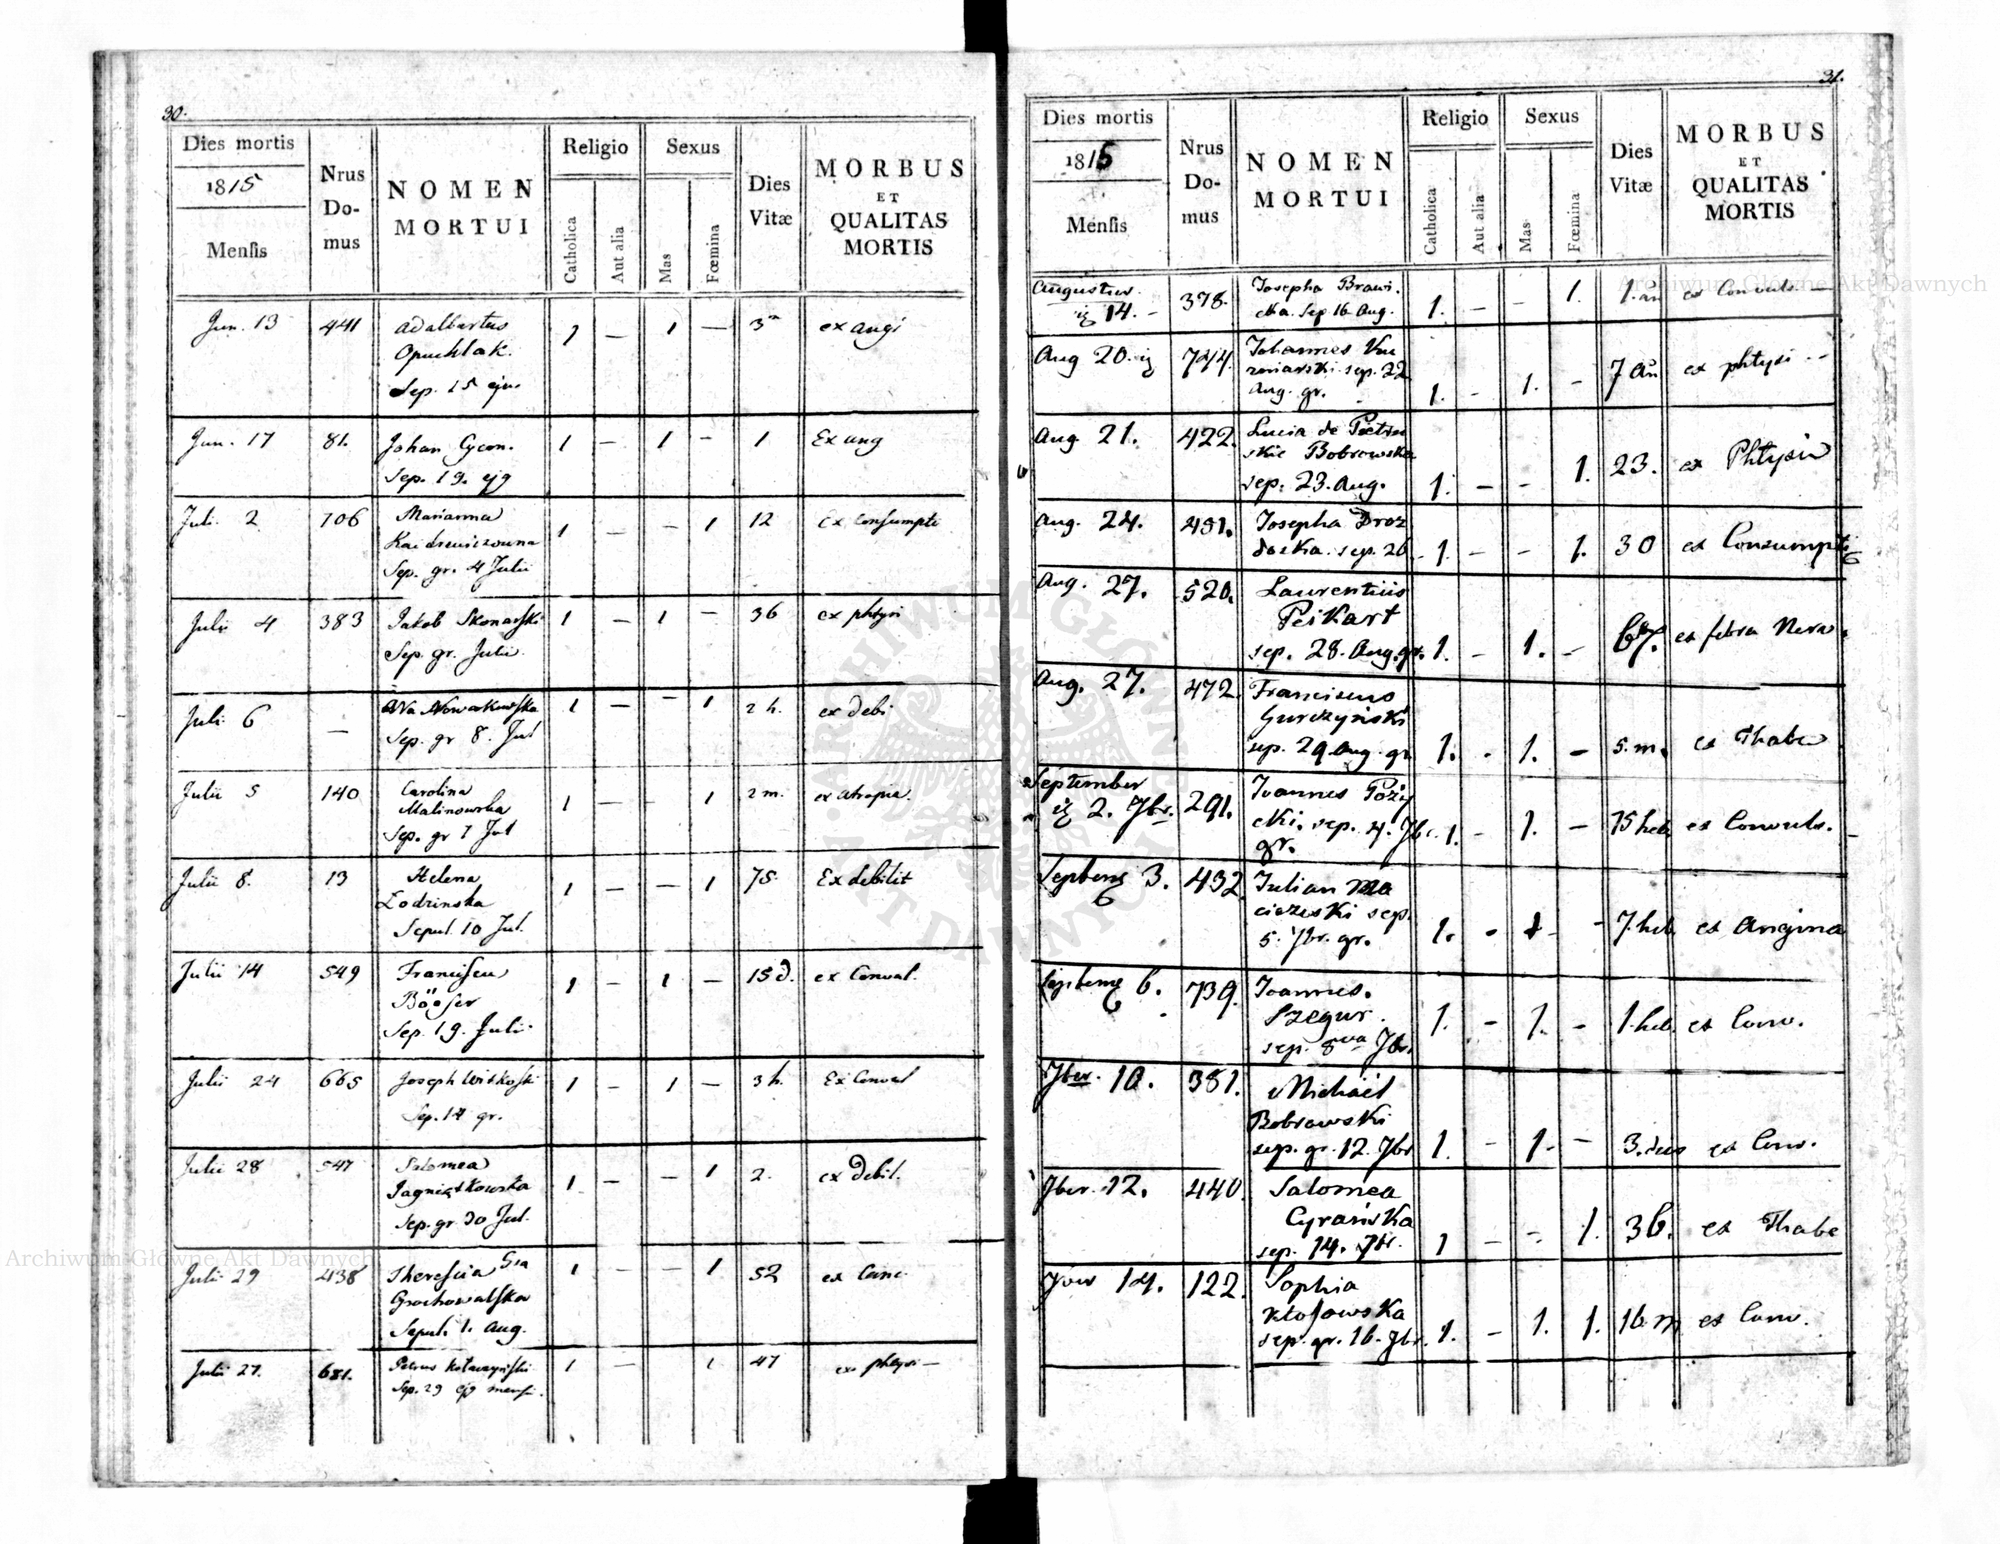 30.
Dies mortis
1815
Mensis
Nrus
Do-
mus
NOMEN
MORTUI
Religio
Catholica
Aut alia
Sexus
Mas
Fœmina
Dies
Vitæ
MORBUS
ET
QUALITAS
MORTIS
Jun. 13 441 Adalbertus 1 — 1 — 3 ex angi
Opuchlak.
Sep. 15 ejus
Jun. 17 81. Johan Cycon. 1 — 1 — 1 Ex ang
Sep. 19. ejg
Juli. 2 706 Marianna 1 — — 1 12 Ex Consumpti
Sep. gr. 4 Julii
Julii 4 383 Jakob Skonarski 1 — 1 — 36 ex phtysi
Sep. gr. Julii
Juli 6 — Nowakowska 1 — — 1 2 h. ex debi
Sep. gr 8. Jul
Julii 5 140 Carolina 1 — — 1 2 m. ex atropia.
Malinowska
Sep. gr 7 Jul
Julii 8. 13 Helena 1 — — 1 75 Ex debilit
Łodzinska
Sepul. 10 Jul.
Julii 14 549 Franciscu 1 — 1 — 15 d. ex Conval.
Sep. 19. Julii
Julii 24 665 Joseph Witkoski 1 — 1 — 3 h. Ex Conval
Sep. 14 gr.
Julii 28 547 Salomea 1 — — 1 2. ex Debil.
Jagniątkowska
Sep. gr. 30 Jul.
Julii 29 438 Theresia 1 — — 1 52
Grochowalska
Sepul. 1. Aug.
Julii 27. 681. Petrus 1 — 1 47 ex phtysi —
Sep. 29 ejg mensi.
31.
Dies mortis
1815
Mensis
Nrus
Do-
mus
NOMEN
MORTUI
Religio
Catholica
Aut alia
Sexus
Mas
Fœmina
Dies
Vitæ
MORBUS
ET
QUALITAS
MORTIS
Augustus 378. Josepha 1. — – 1. 1. an ex Convuls. —
14. – cka. Sep 16 Aug.
Aug 20. 744. Johannes 1. – 1. – 7 an ex phtysi –
sep. 22
Aug. gr.
Aug 21. 422. Lucia de Pietru 1. – – 1. 23. ex Phtysi
skie Bobrowska
sep. 23. Aug.
Aug. 24. 451. Josepha Droz 1. – – 1. 30 ex Consumpti
doska. sep. 26
Aug. 27. 520. Laurentius 1. – 1. – 67. ex febra Nerv.
Peikart
sep. 28. Aug. gr.
Aug. 27. 472. Franciscus 1. – 1. – 5. m. ex Thabe
Gurczynski
sep. 29 Aug. gr
September 291. Joannes Poży 1. – 1. – 15 heb. ex Convuls.
2. 7br. cki, sep. 4. 7br.
gr.
Septemb 3. 432 Julian Ma 1. – 1 – 7. heb. ex Angina
ciezeski sep.
5. 7br. gr.
Septemb 6. 739. Joannes. 1. – 1. – 1. heb. ex Conv.
Szegur.
sep. 8va 7br.
7ber. 10. 381. Michael 1. – 1. – 3. dies ex Conv.
Bobrowski
sep. gr. 12. 7br
7ber. 12. 440. Salomea 1 – – 1. 36. ex Thabe
Cyranska
sep. 14. 7br.
7ber 14. 122. Sophia 1. – 1. 1. 16. m ex Conv.
Kłosowska
sep. gr. 16. 7br.
Archiwum Główne Akt Dawnych
Archiwum Główne Akt Dawnych
ARCHIWUM GŁÓWNE AKT DAWNYCH